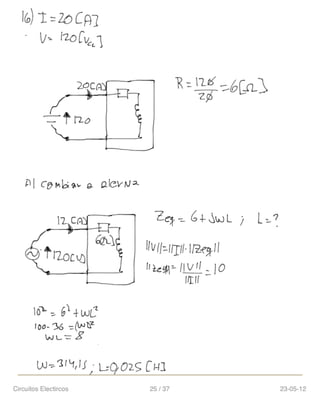 16) I=20[A]
V=120[Vcc]
20[A]
R=120/20=6[Ω]
120
Al cambiar a alterna
12[A]
Zeq=6+JwL ; L=?
6[Ω]
120[V]
||V||=||I||·||Zeq||
||Zeq||=||V||/||I||=10
10²=6²+WL²
100-36=(WL)²
WL=8
W=314,15 ; L=0,025[H]
Circuitos Electricos 25 / 37 23-05-12